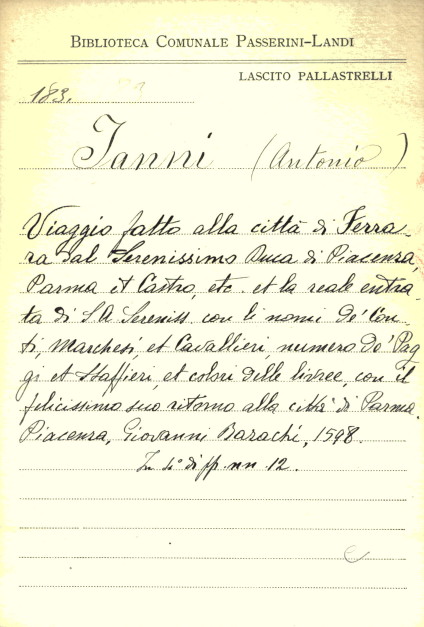 BIBLIOTECA COMUNALE PASSERINI-LANDI
LASCITO PALLASTRELLI
183.
Ianni (Antonio)
Viaggio fatto alla città di Ferra-
ra dal Serenissimo Duca di Piacenza,
Parma et Castro, etc. et la reale entra-
ta di S.A. Sereniss. con li nomi de' Con-
ti, Marchesi, et Cavallieri, numero de' Pag
gi et Staffieri et colori delle livree, con il
felicissimo suo ritorno alla città di Parma.
Piacenza, Giovanni Barachi, 1598.
In 4° di pp. nn 12.